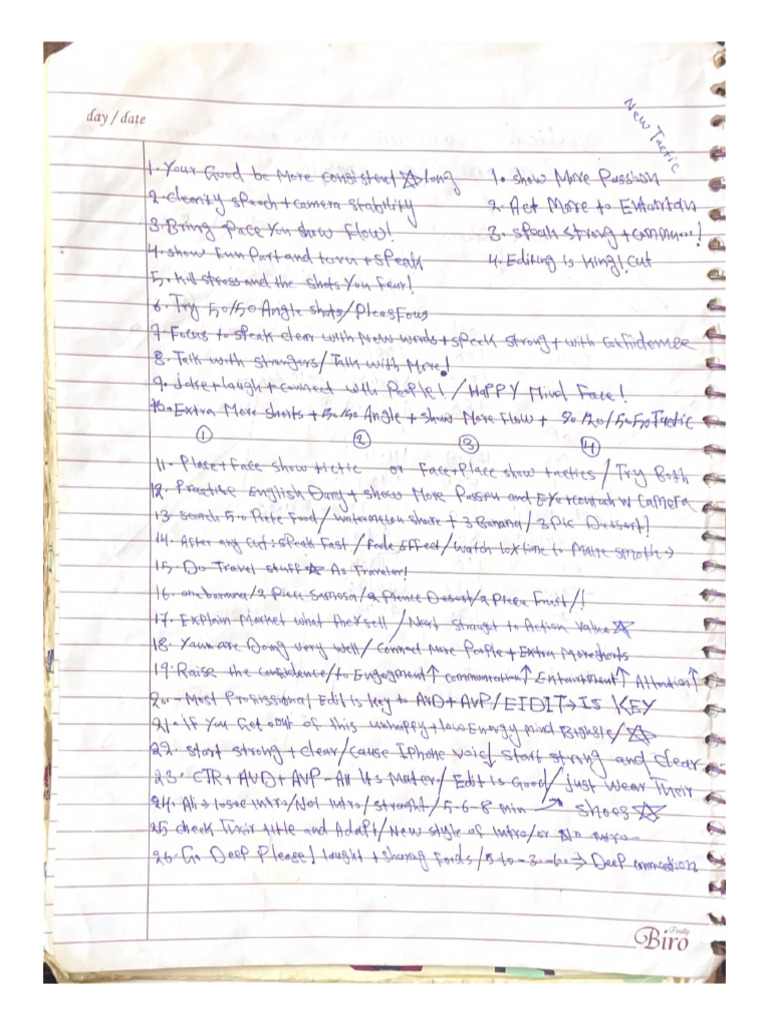 day / date
New Tactic
1. Your Good be More consistent ☆ long
2. clearity speach + camera stability
3. Bring Pace You show Flow!
4. show Fun Part and turn + speak
5. Kill stress and the shots You Fear!
1. show More Passion
2. Act More to Entartain
3. speak strong +
4. Editing is king! cut
6. Try 50/50 Angle shots/
7. Focus to speak clear with New words + speak strong + with confidence
8. Talk with strangers / Talk with More!
9. joke + laugh + connect with People! / HaPPY Mind Face!
10. Extra More shorts + 50/50 Angle + show More Flow + Tactic
① ② ③ ④
11. Place + Face show tictic or Face + Place show tactics / Try Both
12. Practise English Dany + show More Passon and Eye + contact w Camera
13. search 5.0 Food / watermelon share + 3 Banana / 3 Pic Dessert!
14. After any cut: speak Fast / Fade Effect / watch 10x time to Make smoth →
15. Do Travel stuff ☆ As Traveler!
16. one banana / 2 Samosa / 2 Desert / 2 Fruit / !
17. Explain Market what they sell / Next straight to Action value ☆
18. You are Doing very well / Connect More People + Extra More shorts
19. Raise the confidence / to Engagment ↑ ↑ Entertainment ↑ Attention ↑
20. - Most Proffissional Edit is key to AVD + AVP / EIDIT → Is KEY
21. If You Get out of this unhappy + low Energy mind / ☆
22. start strong + clear / cause IPhone void start strong and clear
23. CTR + AVD + AVP - All Its Mater / Edit Is Good / just wear Their
24. Ali → Intro / Not intro / straight / 5-6-8 min → SHOES ☆
25 check Their title and Adapt / New style of Intro / or No intro
26. Go Deep Please! laught + sharing Foods / → Deep
Finely
Biro